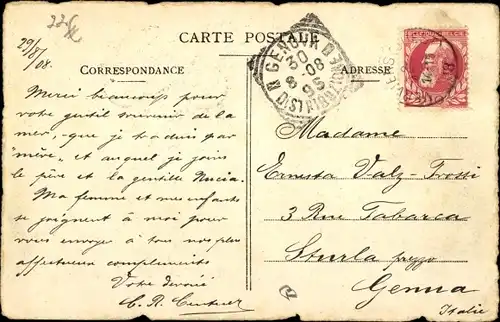 29/8/08.
CARTE POSTALE
CORRESPONDANCE
ADRESSE
GENOVA
Merci beaucoup pour
votre gentil souvenir de la
mer, que je traduis par
"mère", et auquel je joins
le père et la gentille Nucia.
Ma femme et mes enfants
se joignent à moi pour
vous envoyer à tous nos plus
affectueux compliments
Votre dévoué
Madame
Ernesta Valz-Frossi
3 Rue Tabarca
Sturla presso
Genua
Italie